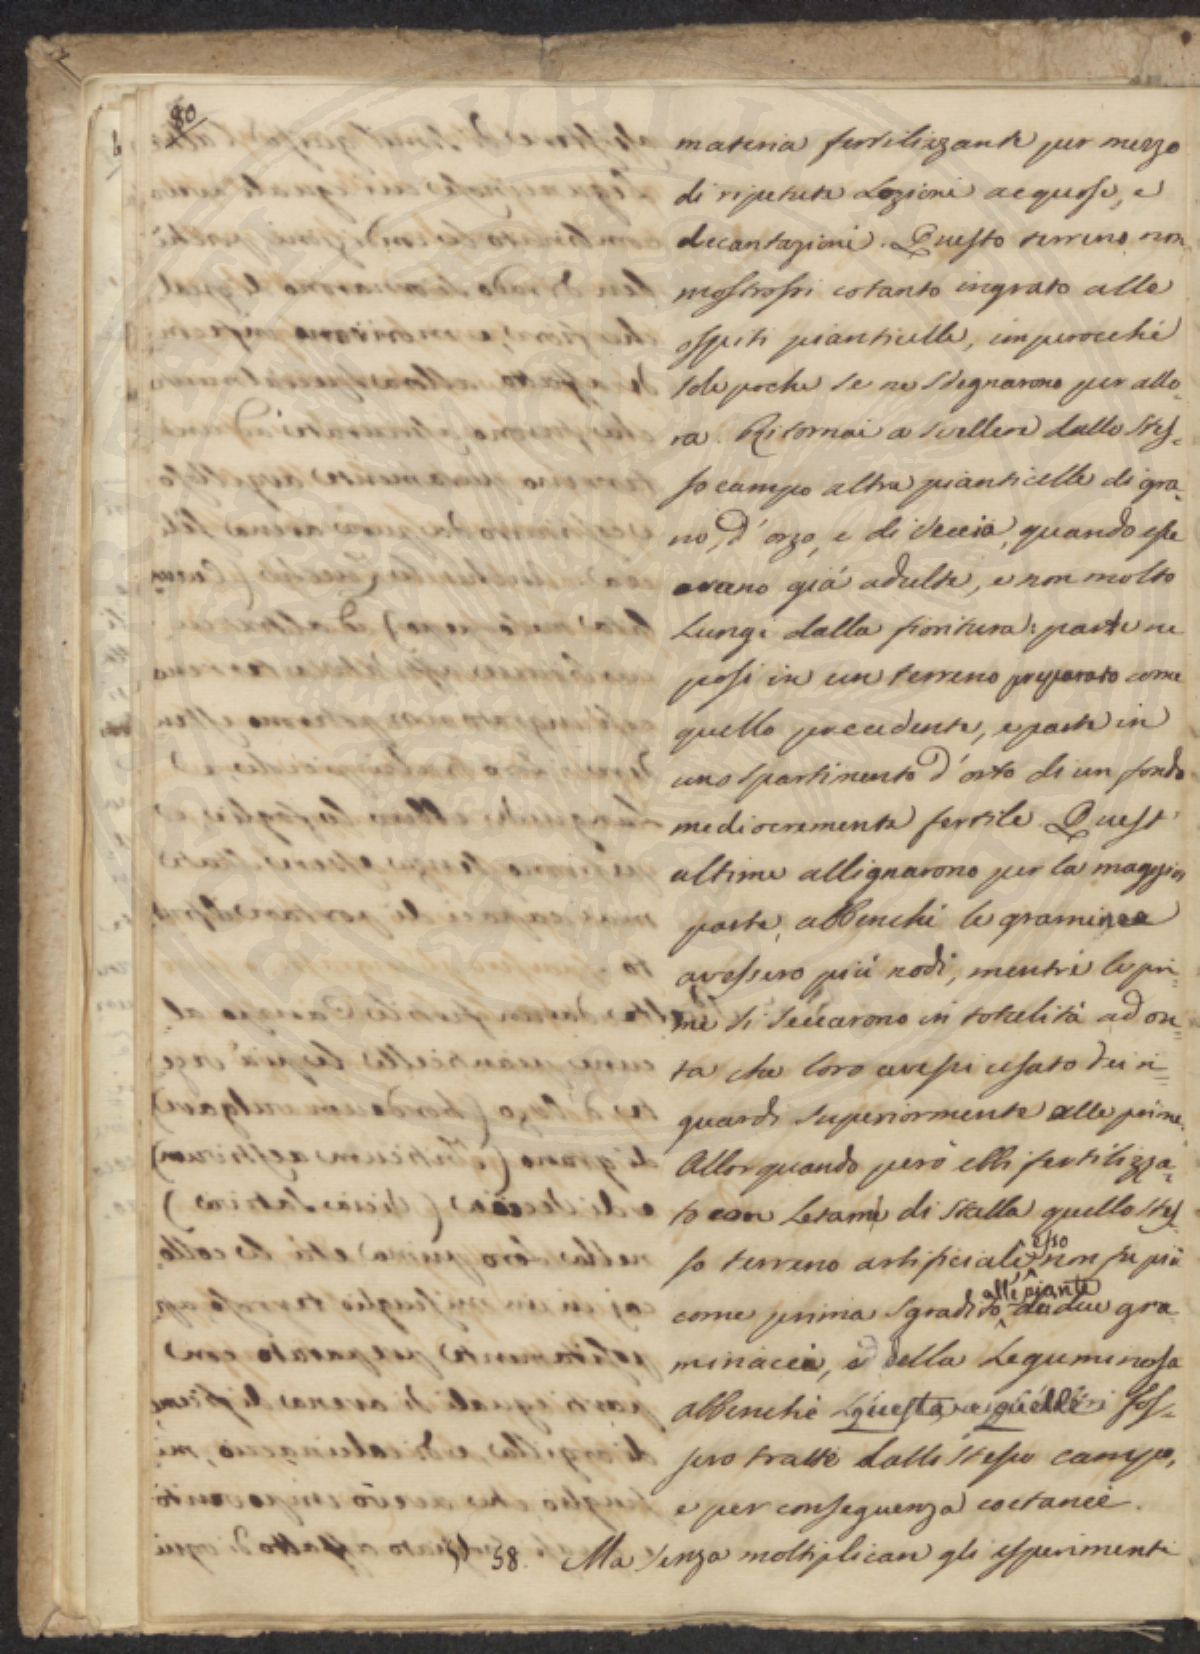 80
materia fertilizzante per mezzo
di ripetute Lozioni acquose, e
decantazioni. Questo terreno non
mostrossi cotanto ingrato alle
ospiti pianticelle, imperocchè
sole poche se ne sdegnarono per allo-
ra. Ritornai a svellere dallo stes-
so campo altre pianticelle di gra-
no, d'orzo, e di Veccia, quando esse
erano già adulte, e non molto
Lungi dalla fioritura: parte ne
posi in un terreno preparato come
quello precedente, e parte in
uno spartimento d'orto di un fondo
mediocremente fertile. Quest'
ultime allignarono per la maggior
parte, abbenchè le graminee
avessero più nodi, mentre le pri-
me si seccarono in totalità ad on-
ta che loro avessi usato dei ri-
guardi superiormente alle prime.
Allorquando però ebbi fertilizza-
to con Letame di stalla quello stes-
so terreno artificiale esso non fu più
come prima sgradito alle piante due gra
minacee, e della Leguminosa
abbenchè questa, e quelle fos-
sero tratte dallo stesso campo,
e per conseguenza coetanee.
58. Ma senza moltiplicare gli esperimenti